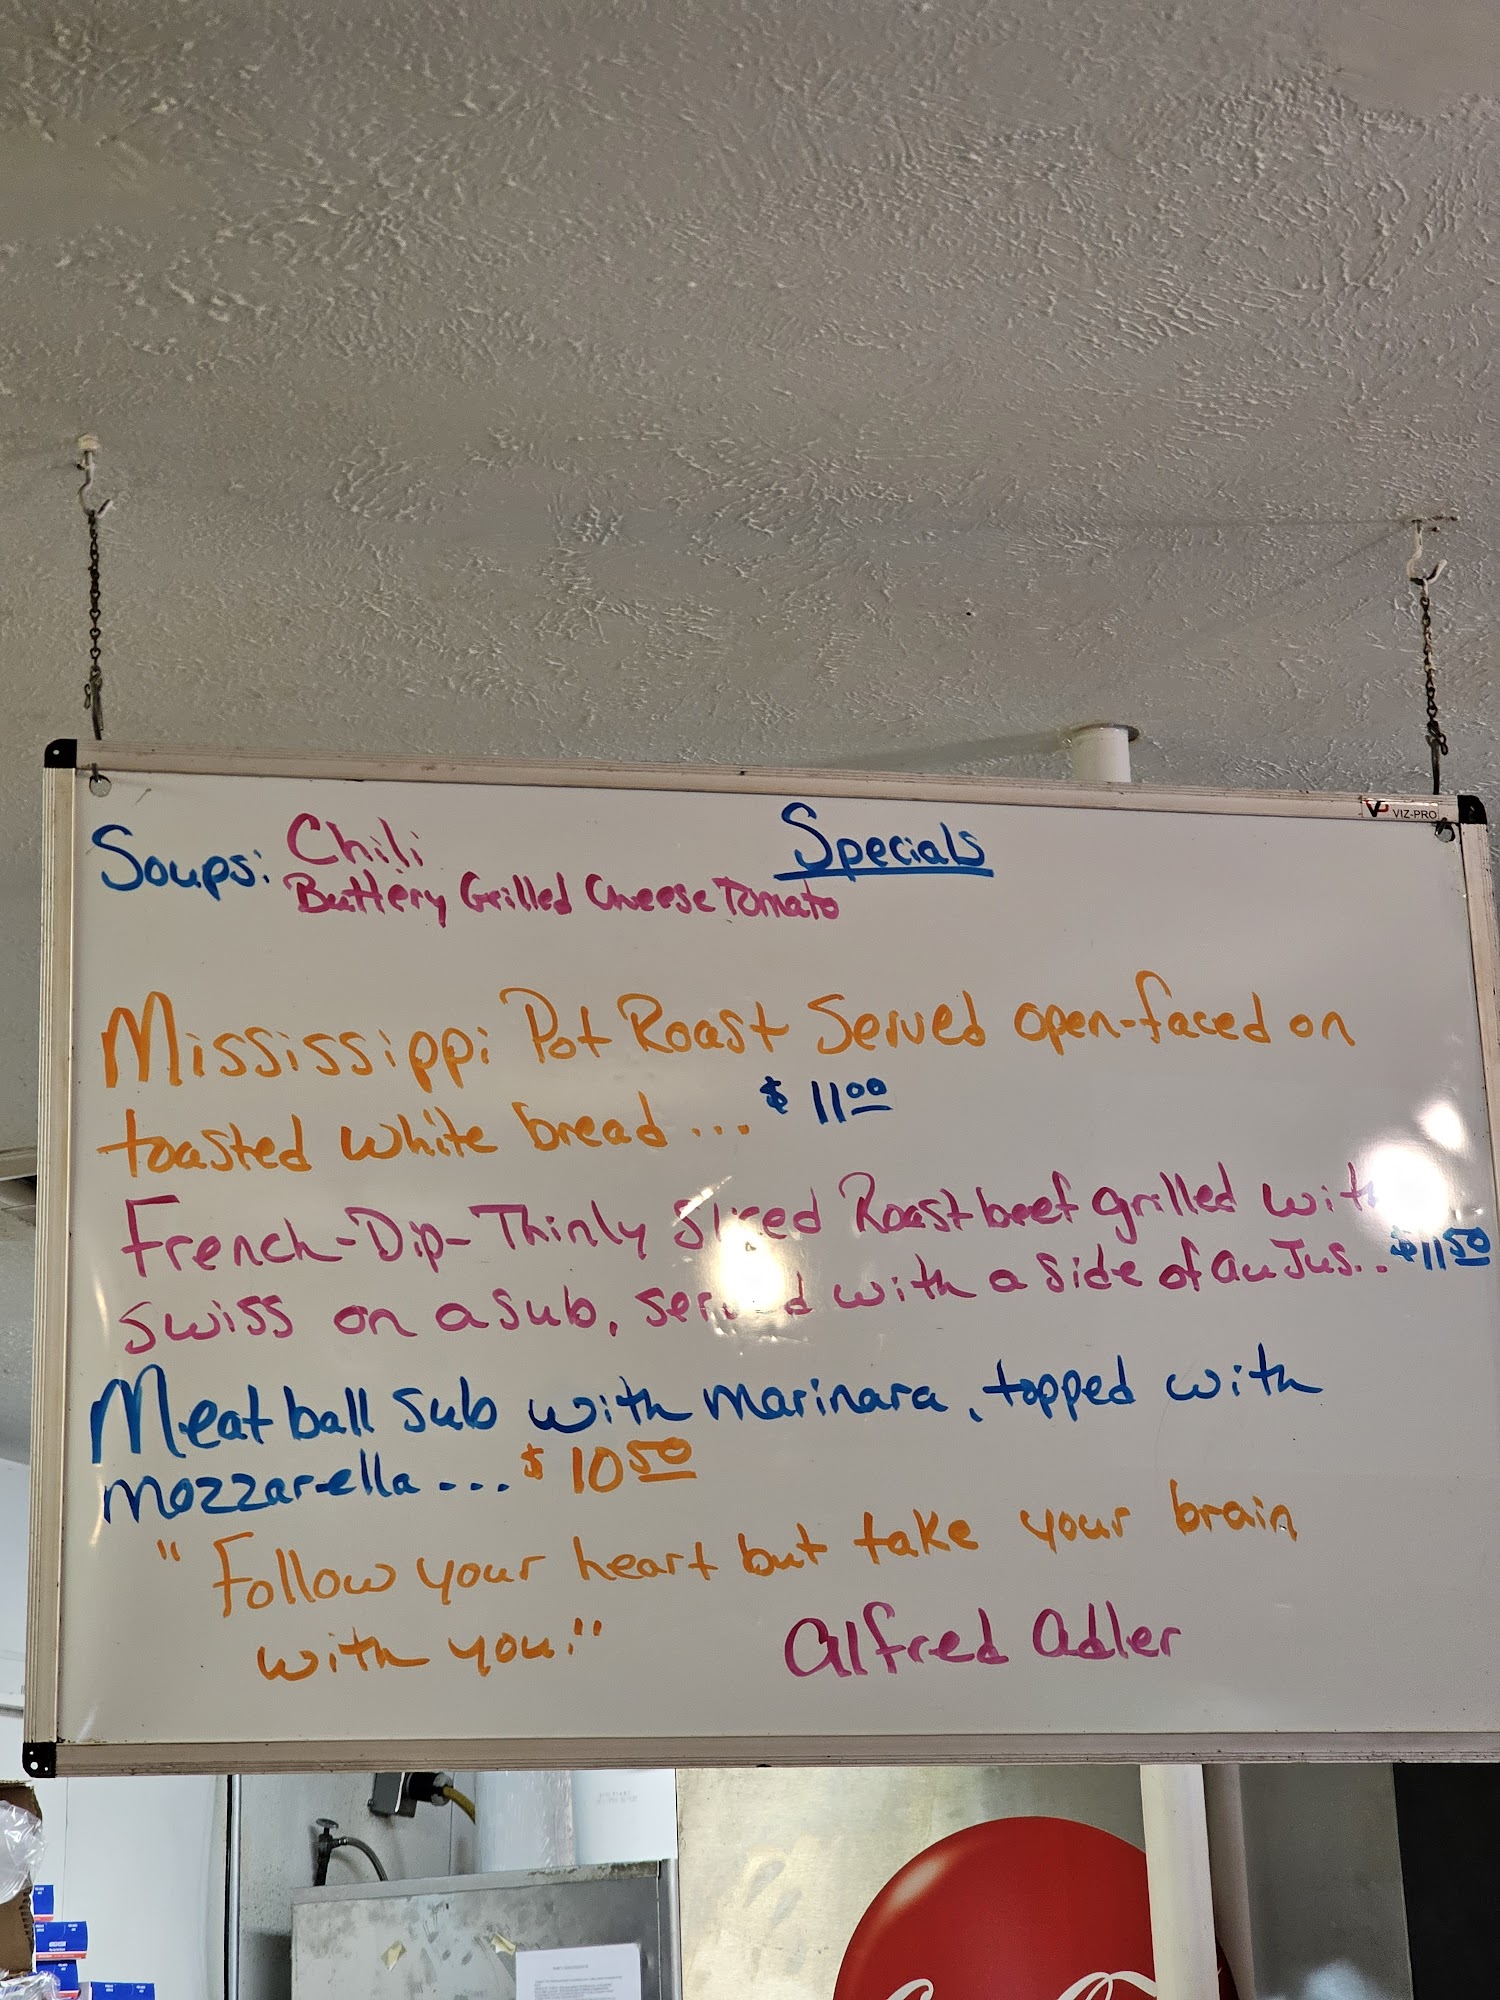 VIZ-PRO
Specials
Soups: Chili
Buttery Grilled Cheese Tomato
Mississippi Pot Roast Served open-faced on
toasted white bread... $11.00
French-Dip-Thinly Sliced Roast beef grilled with
swiss on a sub, served with a side of au Jus.. $11.50
Meatball sub with marinara, topped with
mozzarella... $10.50
"Follow your heart but take your brain
with you."
Alfred Adler